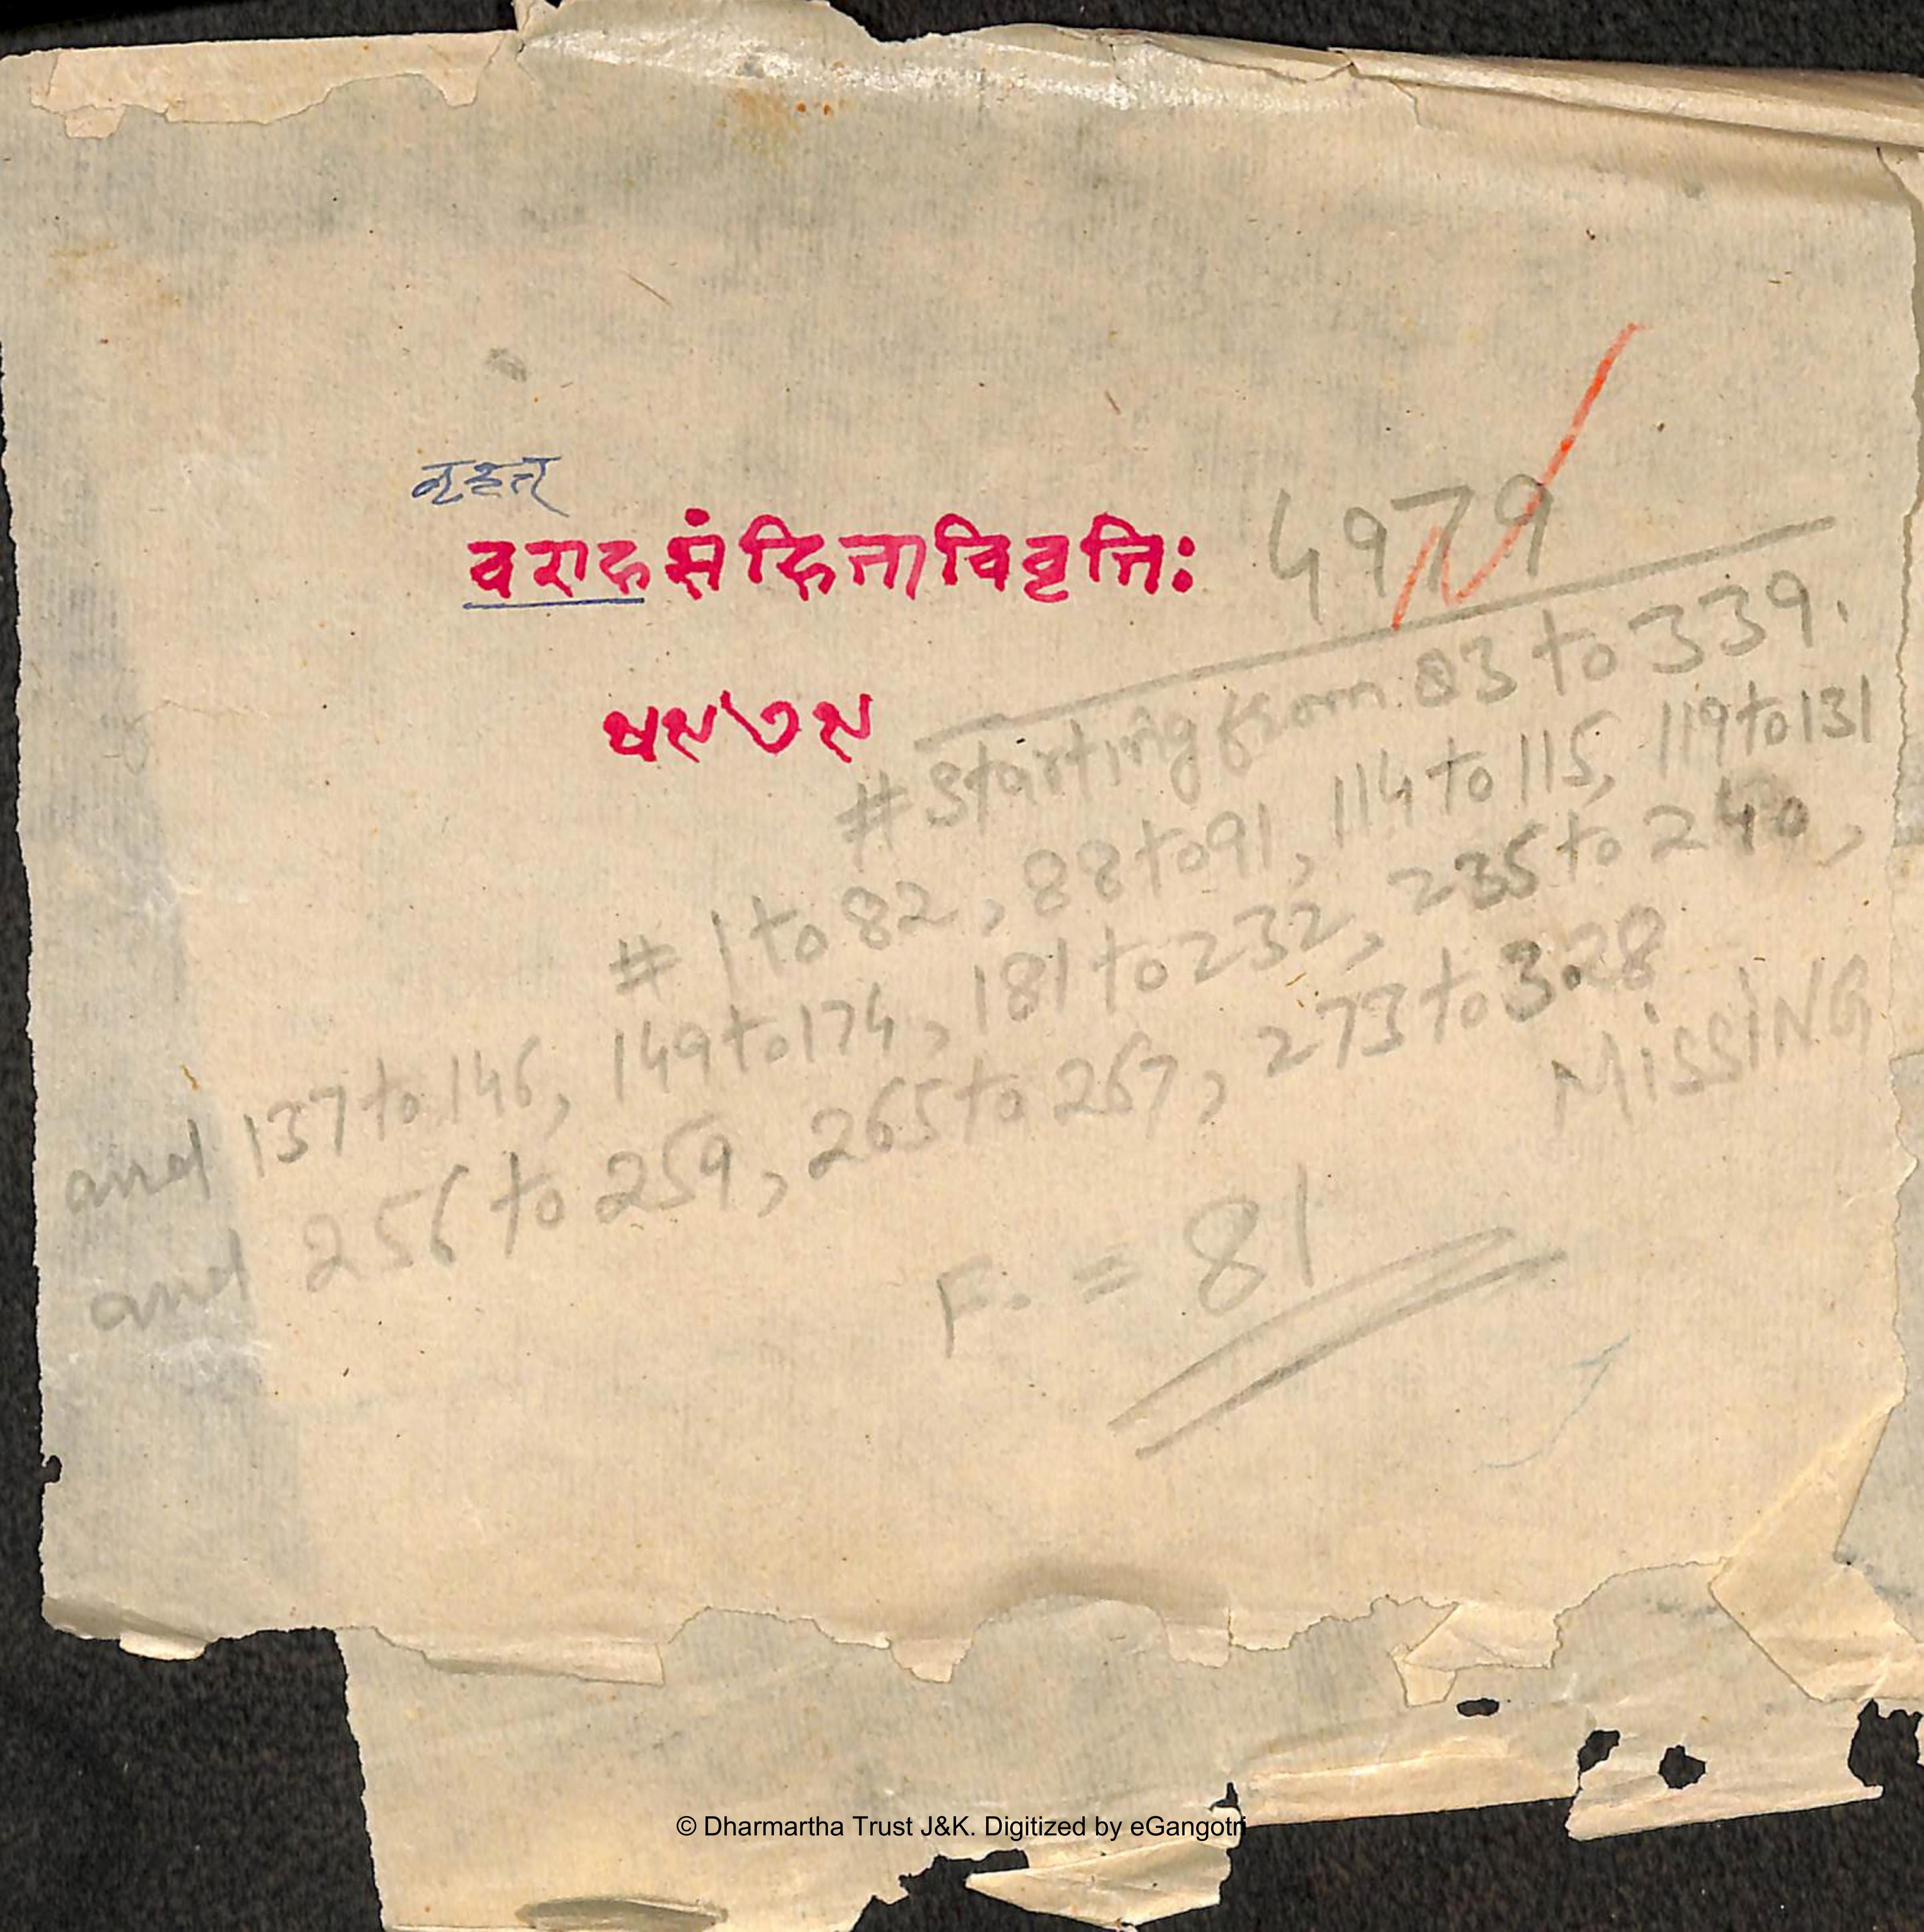 बृहत्
वराहसंहिताविवृत्तिः 4979
४९७९
# Starting from 83 to 339.
# 1 to 82, 88 to 91, 114 to 115, 119 to 131
and 137 to 146, 149 to 174, 181 to 232, 235 to 240,
and 256 to 259, 265 to 267, 273 to 328
MISSING
F. = 81
© Dharmartha Trust J&K. Digitized by eGangotri